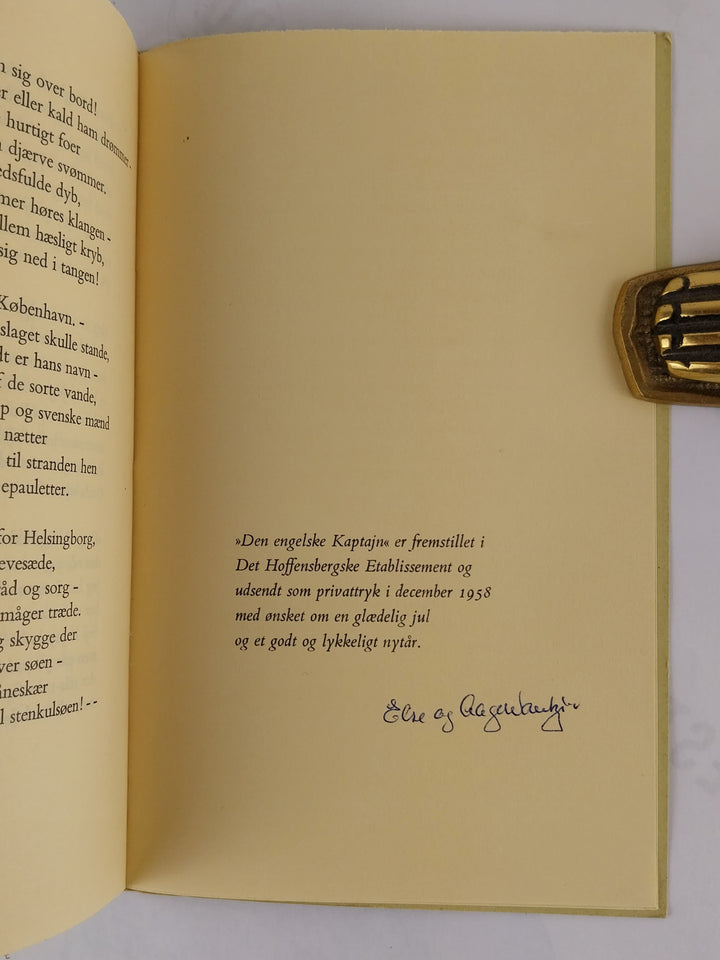 sig over bord!
eller kald ham drømmer -
hurtigt foer
djærve svømmer.
dyb,
høres klangen -
hæsligt kryb,
sig ned i tangen!
København. -
slaget skulle stande,
er hans navn -
de sorte vande,
og svenske mænd
nætter
til stranden hen
epauletter.
for Helsingborg,
og sorg -
måger træde.
skygge der
søen -
stenkulsøen! - -
»Den engelske Kaptajn« er fremstillet i
Det Hoffensbergske Etablissement og
udsendt som privattryk i december 1958
med ønsket om en glædelig jul
og et godt og lykkeligt nytår.
Else og Aage